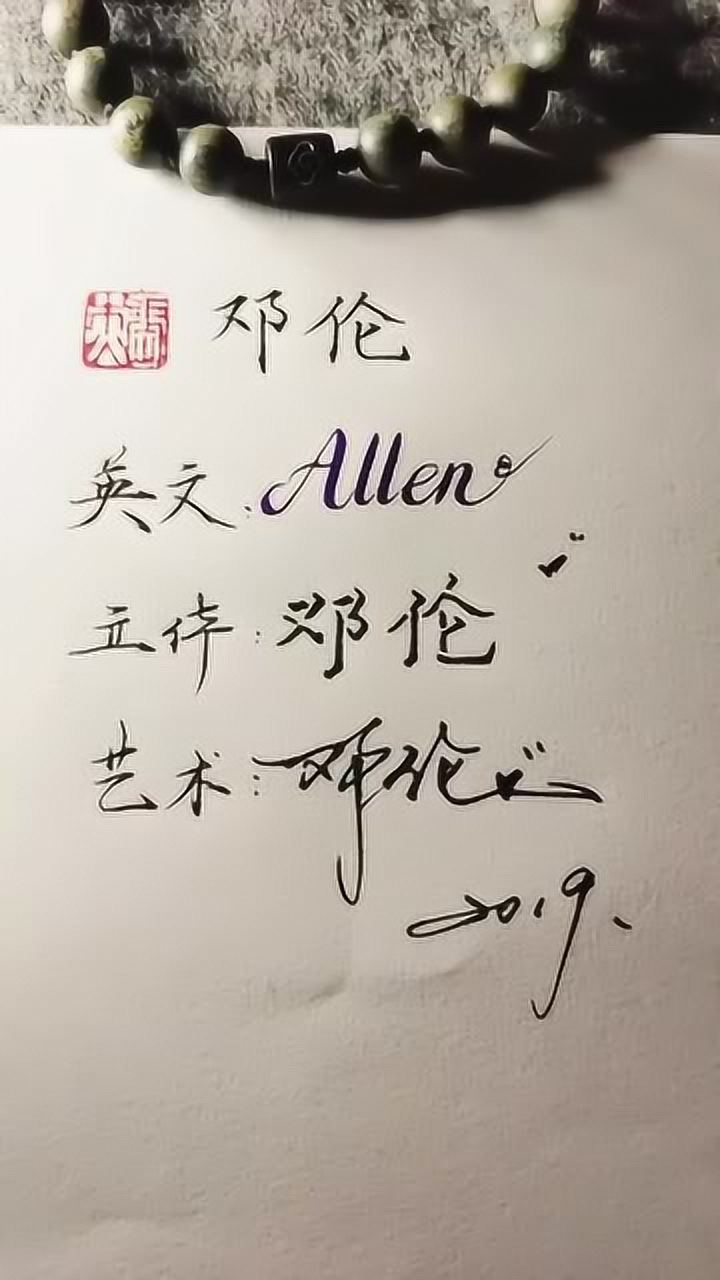 邓伦
英文:Allen
立体:邓伦
艺术:邓伦
2019.